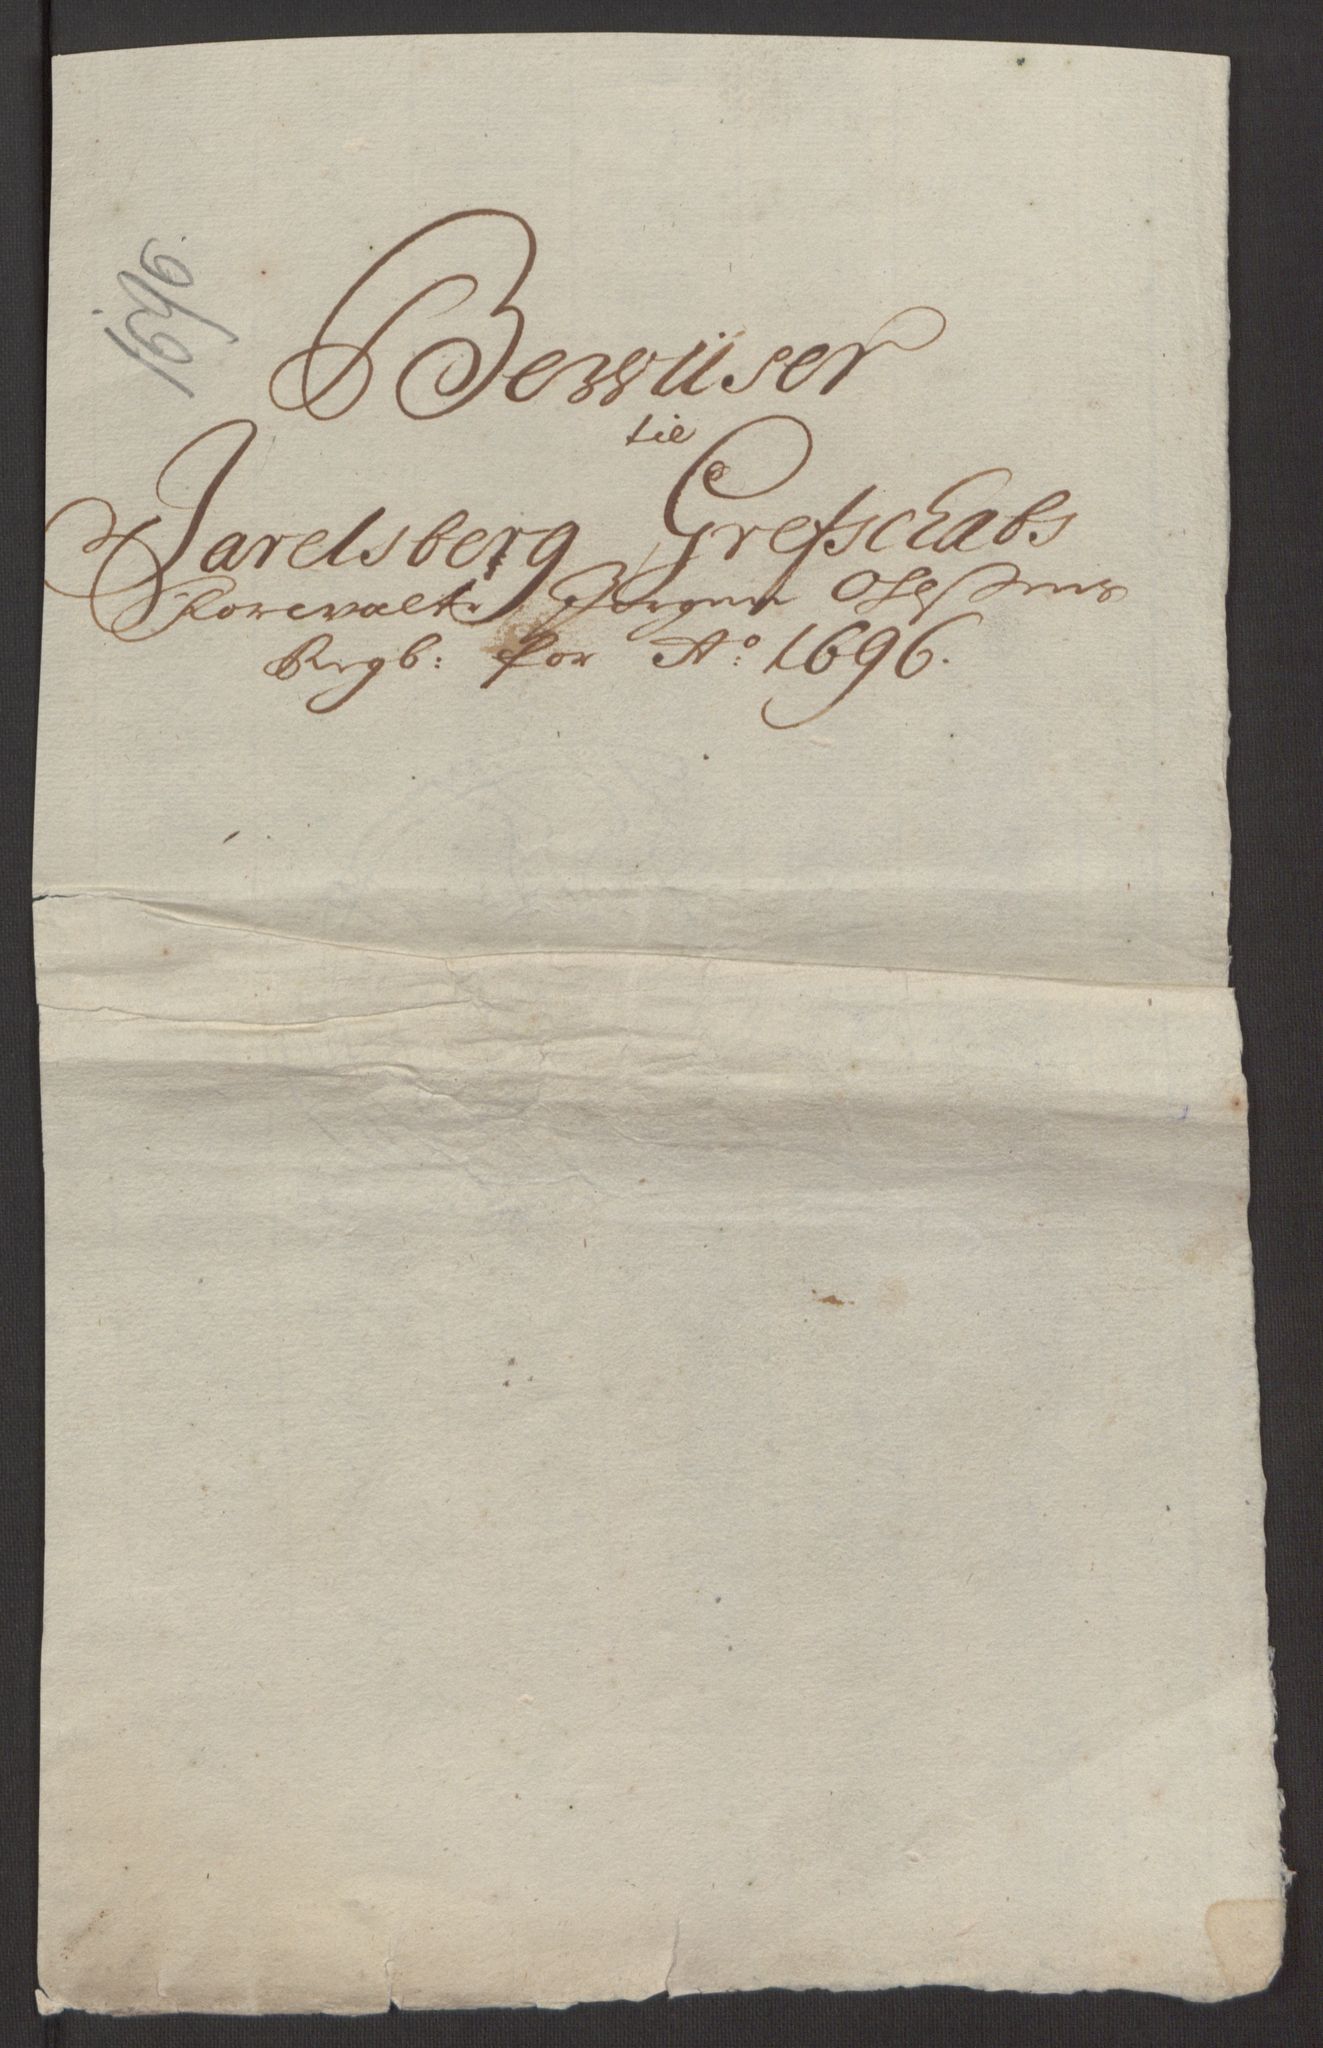 1696.
Bewiiser
til
Jarelsberg Grefschabs
Forwalter Jørgen
Regb: for Ao: 1696.